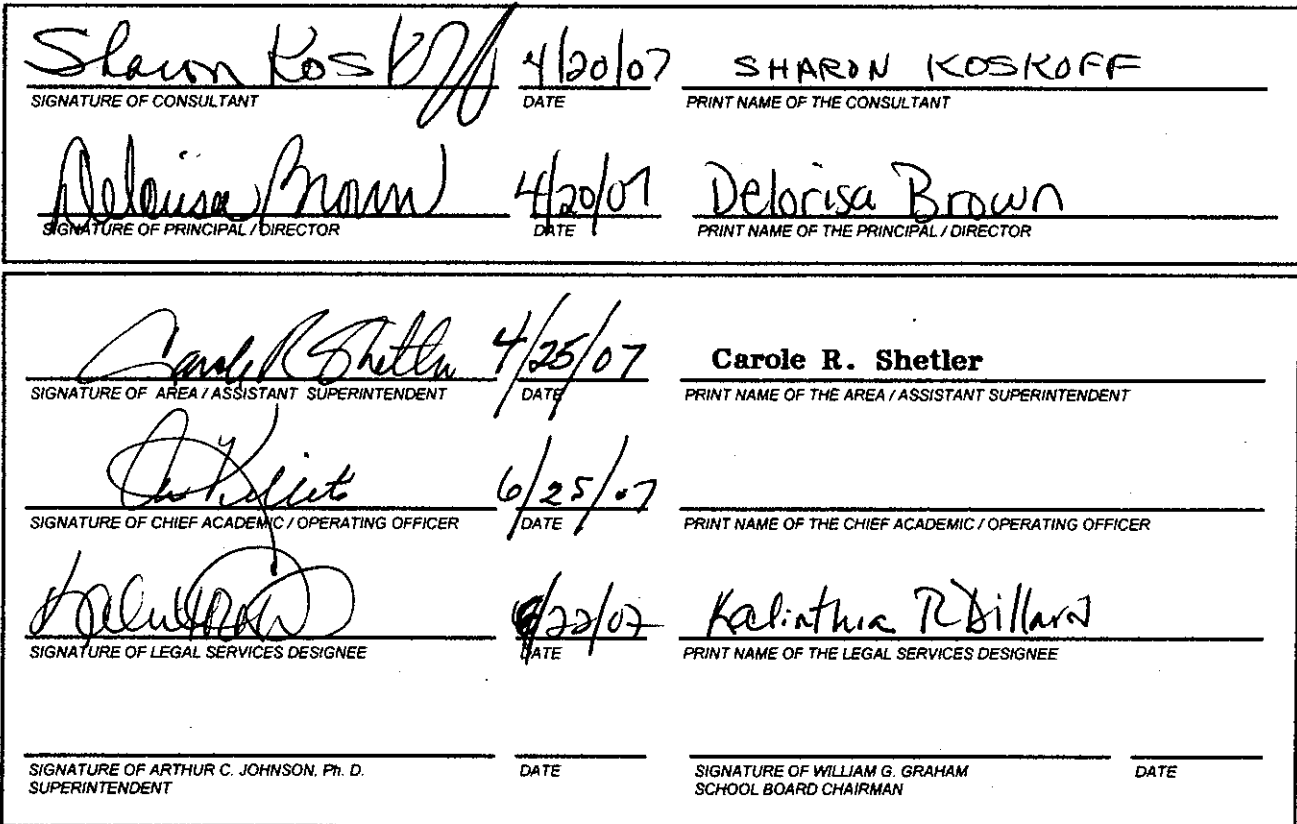 Sharon Kosk 4/20/07 SHARON KOSKOFF
SIGNATURE OF CONSULTANT DATE PRINT NAME OF THE CONSULTANT
Delorisa Brown 4/20/07 Delorisa Brown
SIGNATURE OF PRINCIPAL / DIRECTOR DATE PRINT NAME OF THE PRINCIPAL / DIRECTOR
Carole R Shetler 4/25/07 Carole R. Shetler
SIGNATURE OF AREA / ASSISTANT SUPERINTENDENT DATE PRINT NAME OF THE AREA / ASSISTANT SUPERINTENDENT
6/25/07
SIGNATURE OF CHIEF ACADEMIC / OPERATING OFFICER DATE PRINT NAME OF THE CHIEF ACADEMIC / OPERATING OFFICER
/22/07 Kalinthia R Dillard
SIGNATURE OF LEGAL SERVICES DESIGNEE DATE PRINT NAME OF THE LEGAL SERVICES DESIGNEE
SIGNATURE OF ARTHUR C. JOHNSON, Ph. D. DATE SIGNATURE OF WILLIAM G. GRAHAM DATE
SUPERINTENDENT SCHOOL BOARD CHAIRMAN